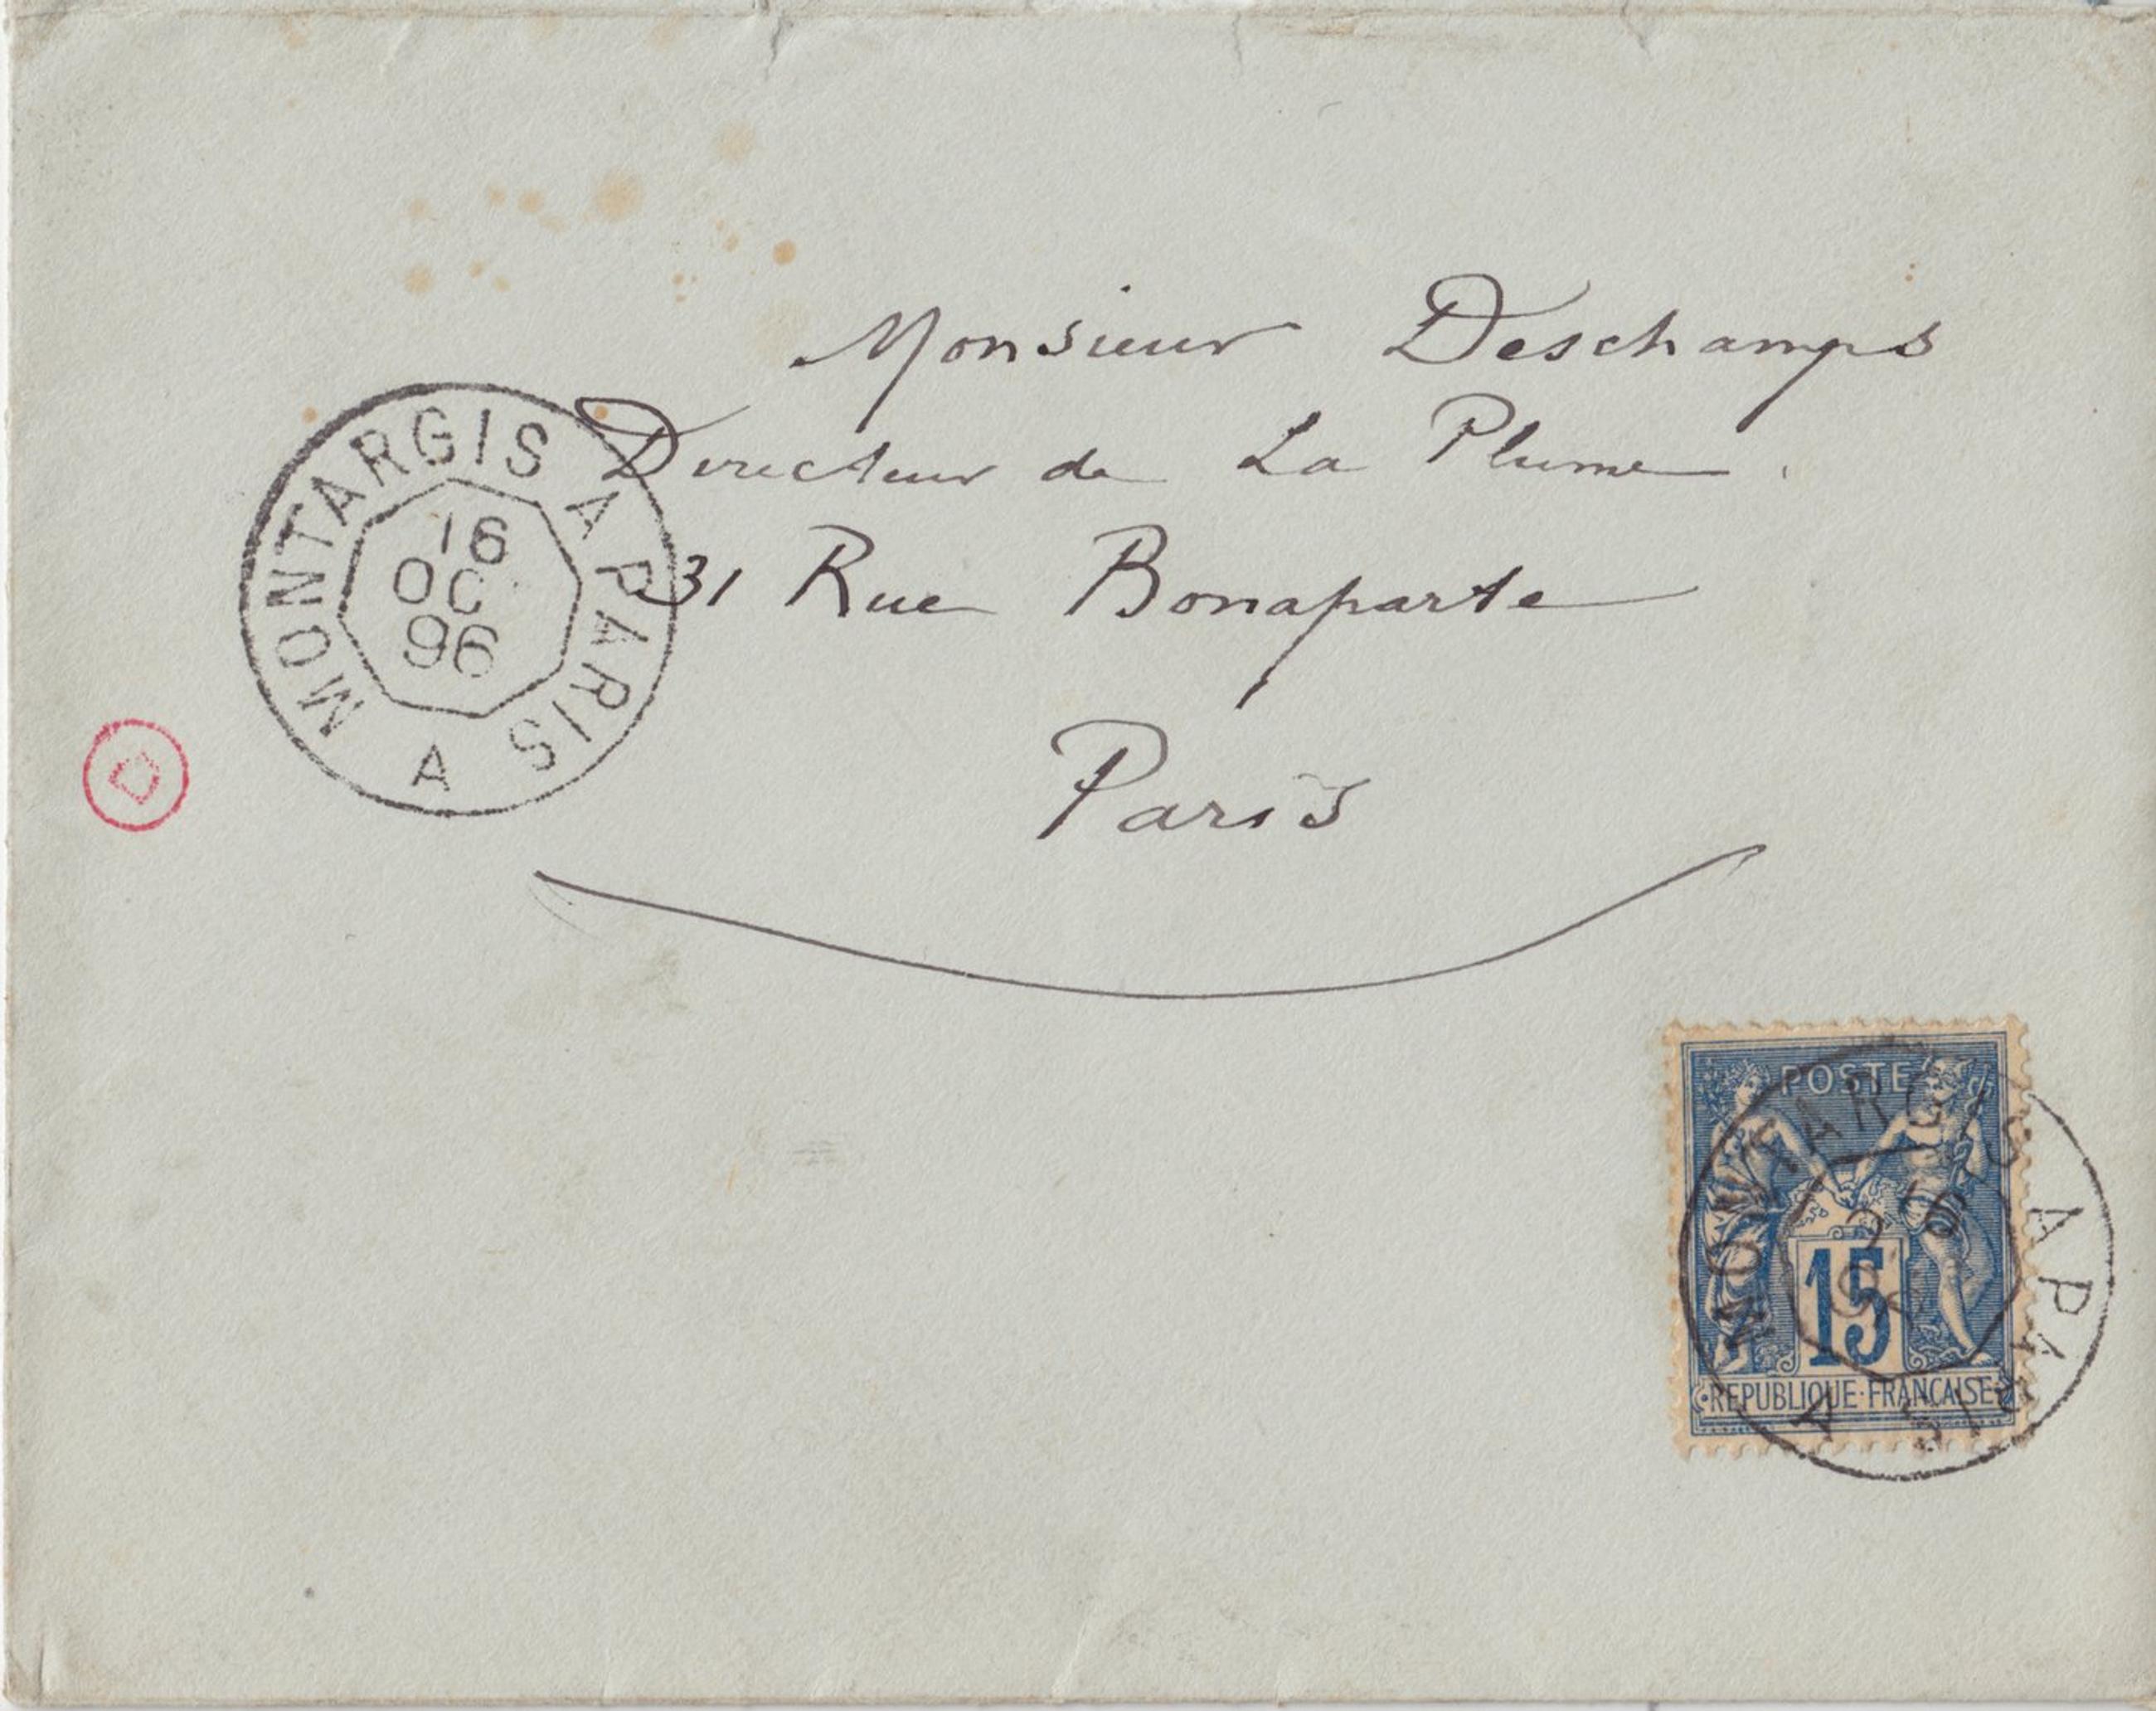 Monsieur Deschamps
Directeur de La Plume.
31 Rue Bonaparte
Paris
MONTARGIS A PARIS
16
OC
96
A
POSTE
15
REPUBLIQUE·FRANCAISE
MONTARGIS A PARIS
16
A